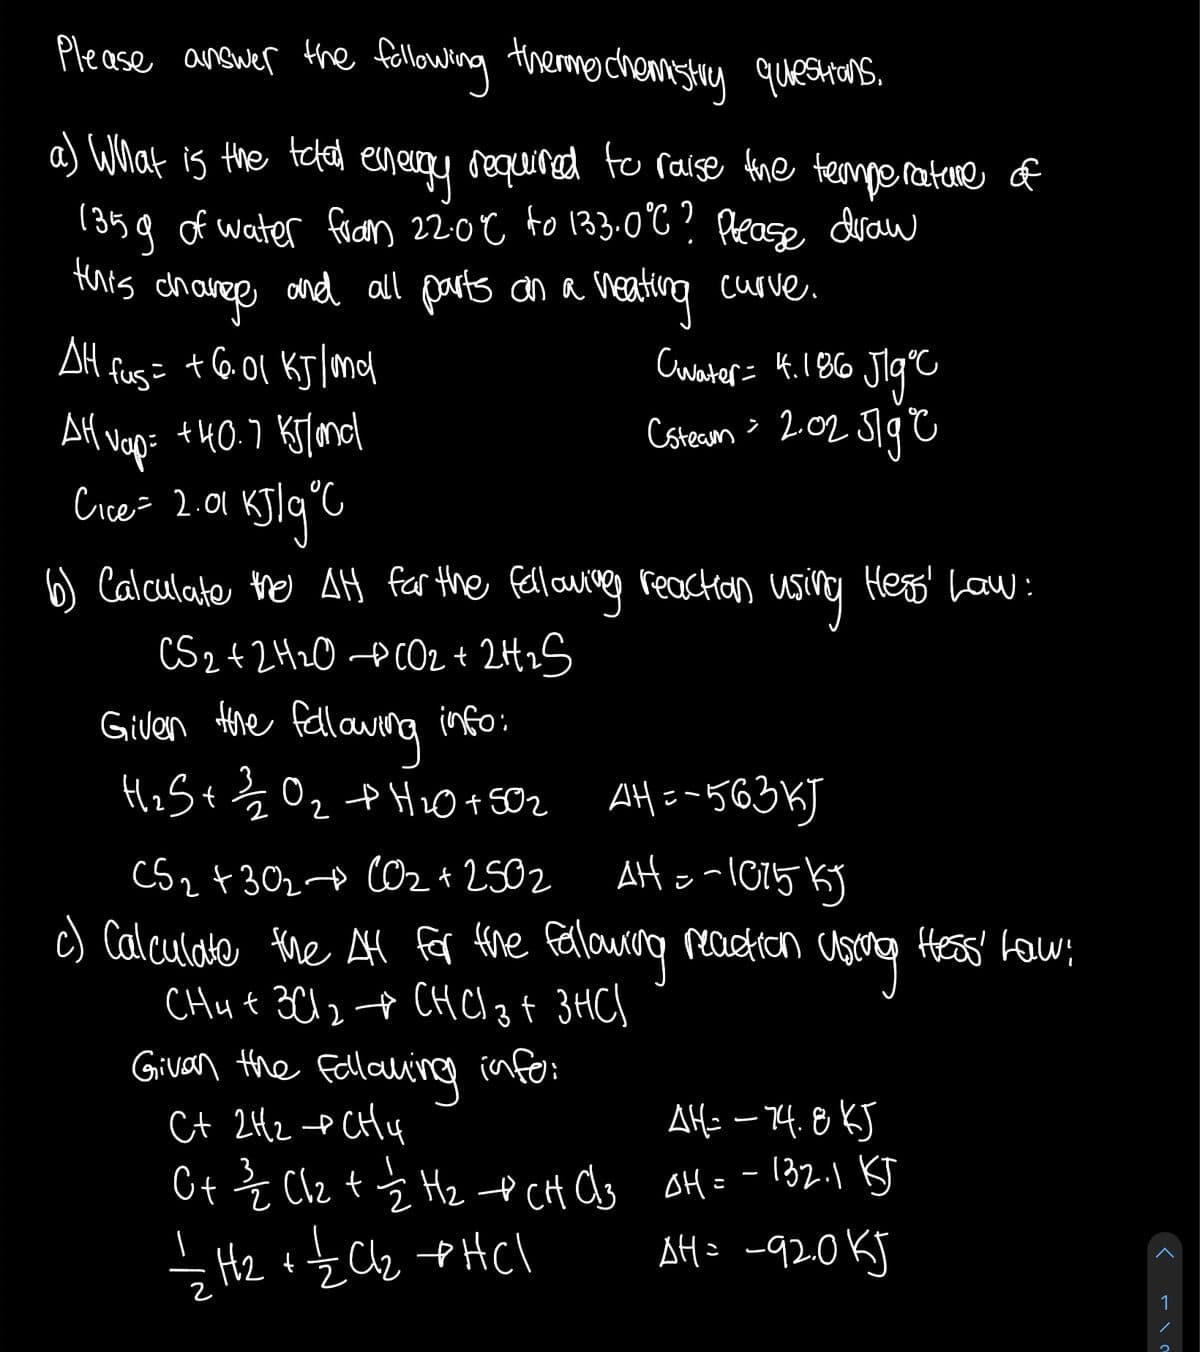 Please answer the following thermochemistry questions.
a) What is the total energy required to raise the temperature of
135g of water from 22.0°C to 133.0°C? Please draw
this change and all parts on a heating curve.
ΔH fus = +6.01 KJ/mol
Cwater = 4.186 J/g°C
ΔH vap = +40.7 KJ/mol
Csteam = 2.02 J/g°C
Cice = 2.01 KJ/g°C
b) Calculate the ΔH for the following reaction using Hess' Law:
CS2 + 2H2O → CO2 + 2H2S
Given the following info:
H2S + 3/2 O2 → H2O + SO2 ΔH = -563 KJ
CS2 + 3O2 → CO2 + 2SO2 ΔH = -1075 KJ
c) Calculate the ΔH for the following reaction using Hess' Law:
CH4 + 3Cl2 → CHCl3 + 3HCl
Given the following info:
C + 2H2 → CH4 ΔH = -74.8 KJ
C + 3/2 Cl2 + 1/2 H2 → CHCl3 ΔH = -132.1 KJ
1/2 H2 + 1/2 Cl2 → HCl ΔH = -92.0 KJ
1
/